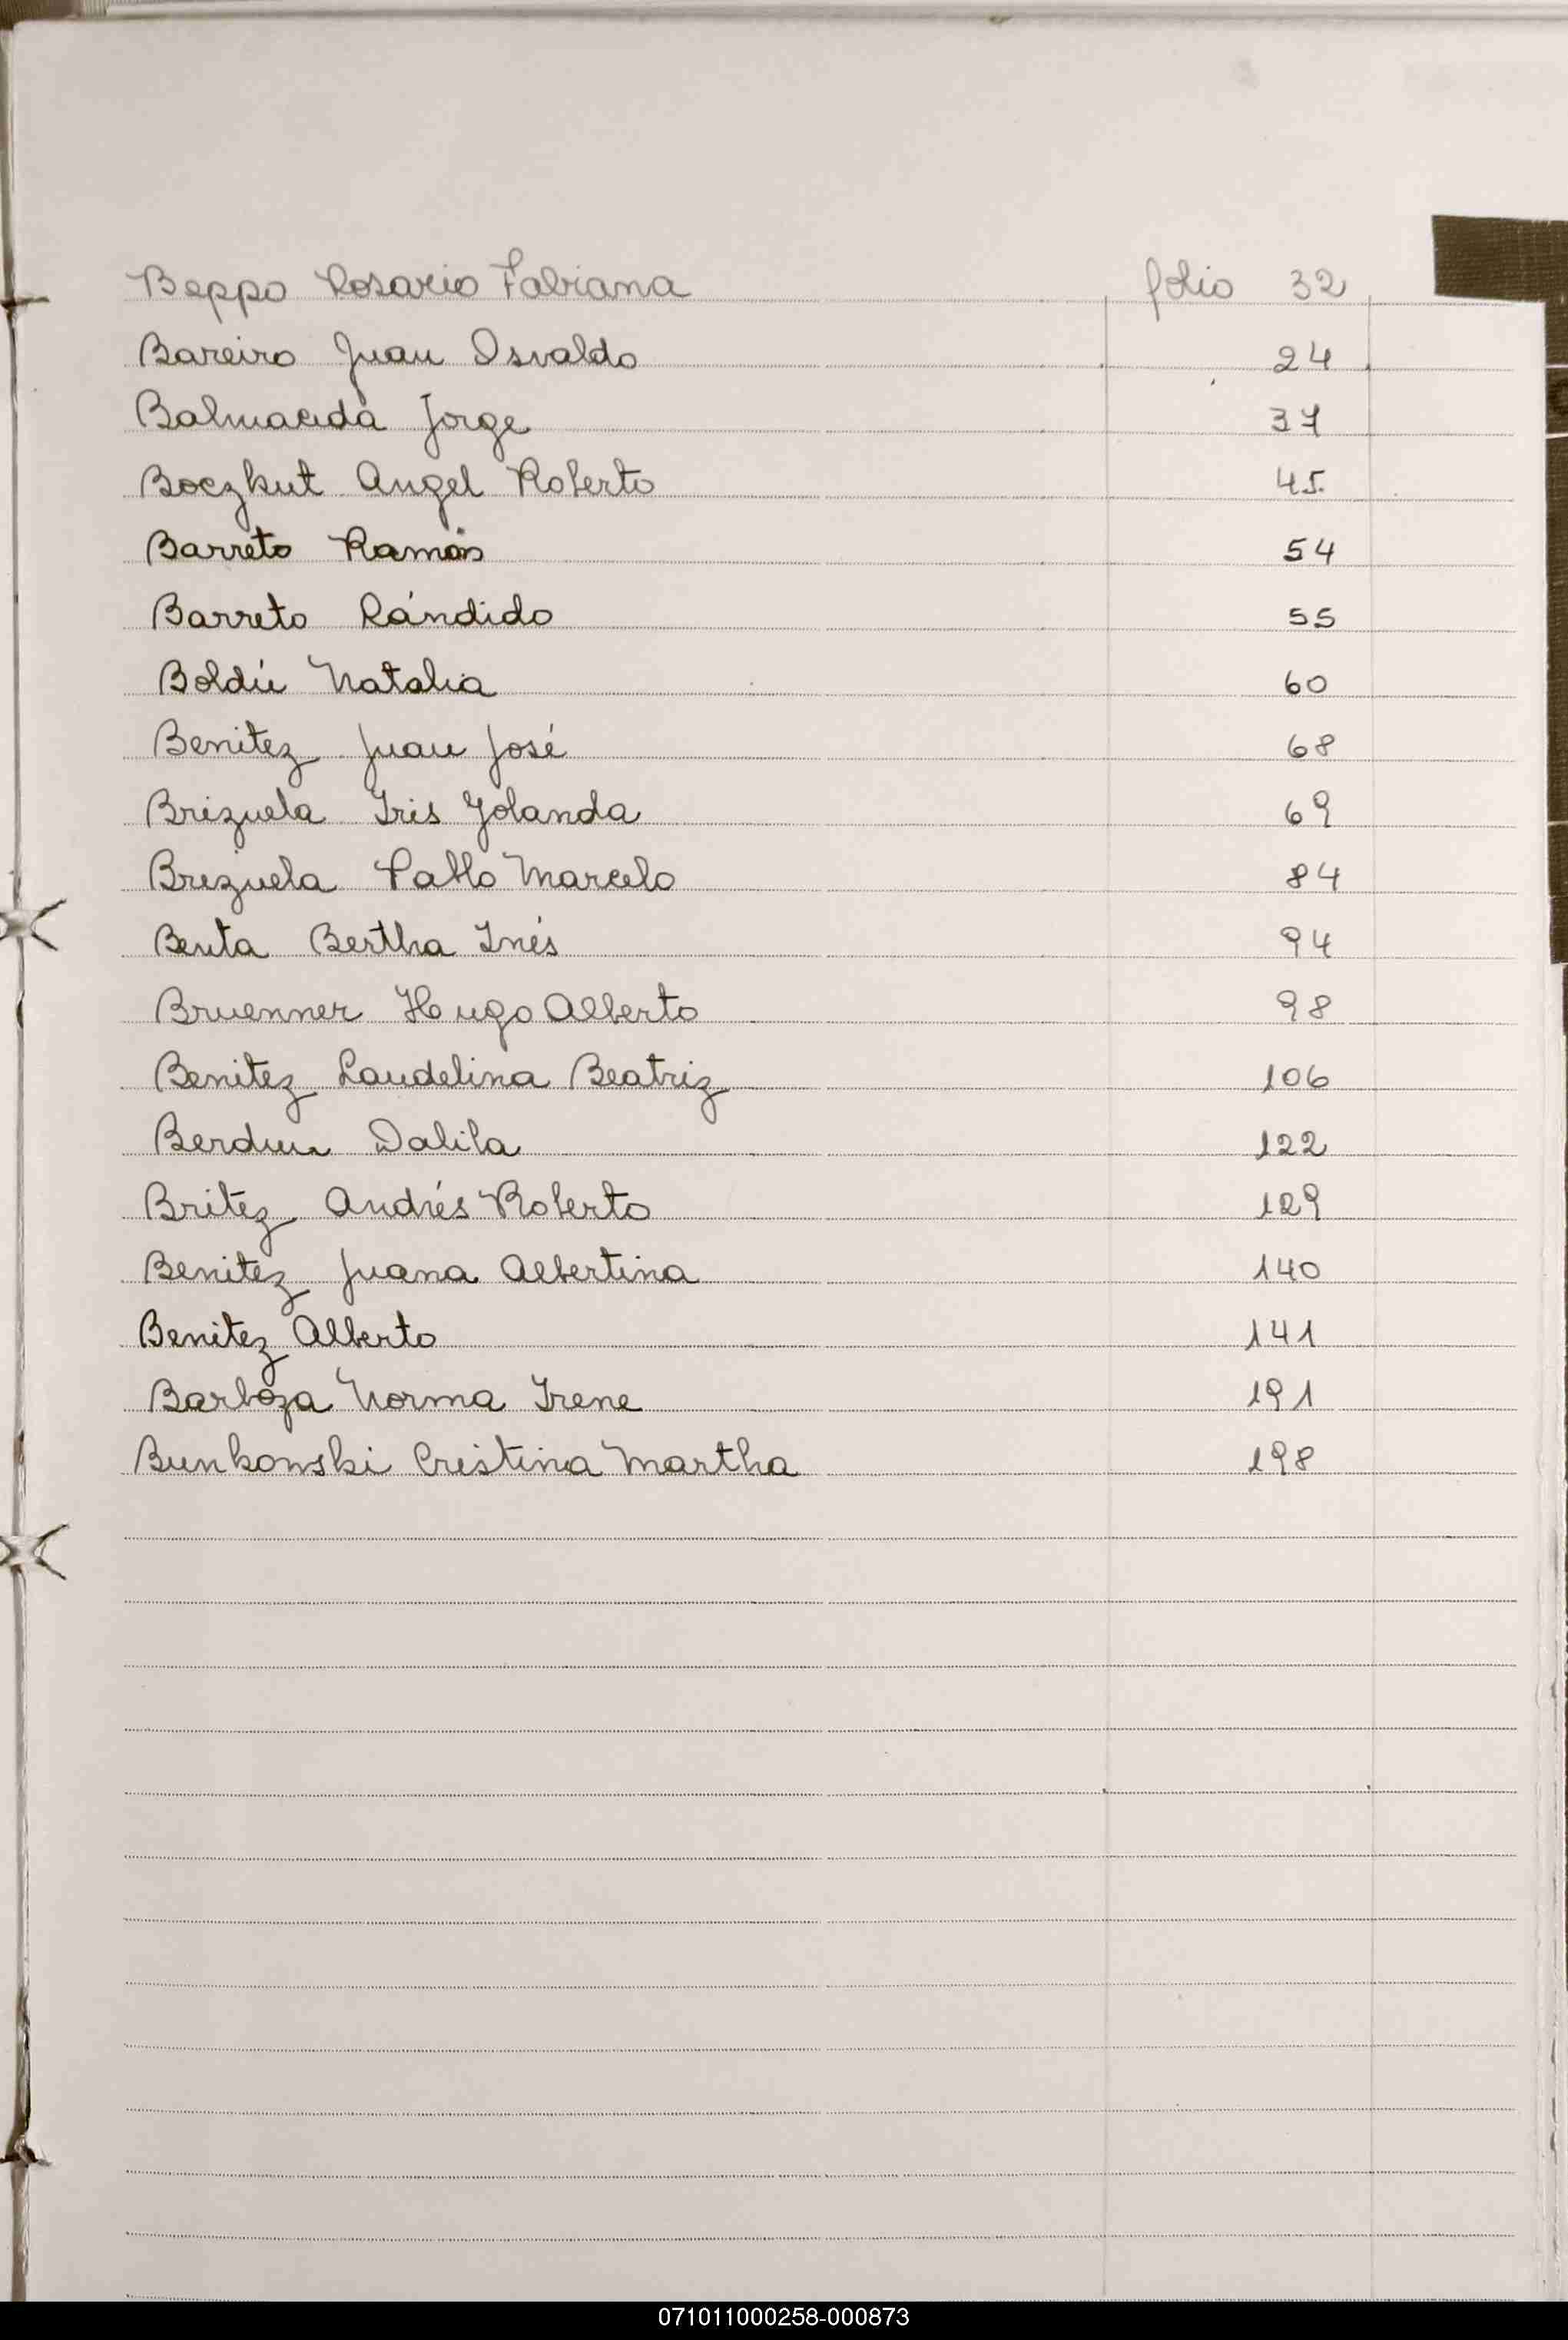 Beppo Rosario Fabiana folio 32
Bareiro Juan Osvaldo 24
Balmaceda Jorge 37
Boczkut Angel Roberto 45
Barreto Ramón 54
Barreto Cándido 55
Boldú Natalia 60
Benitez Juan José 68
Brizuela Iris Yolanda 69
Brizuela Pablo Marcelo 84
Benta Bertha Inés 94
Bruenner Hugo Alberto 98
Benitez Laudelina Beatriz 106
Berdun Dalila 122
Britez Andrés Roberto 129
Benitez Juana Albertina 140
Benitez Alberto 141
Barboza Norma Irene 191
Bunkowski Cristina Martha 198
071011000258-000873